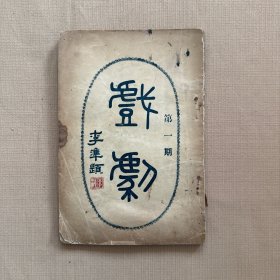 第一期
戲劇
李準題